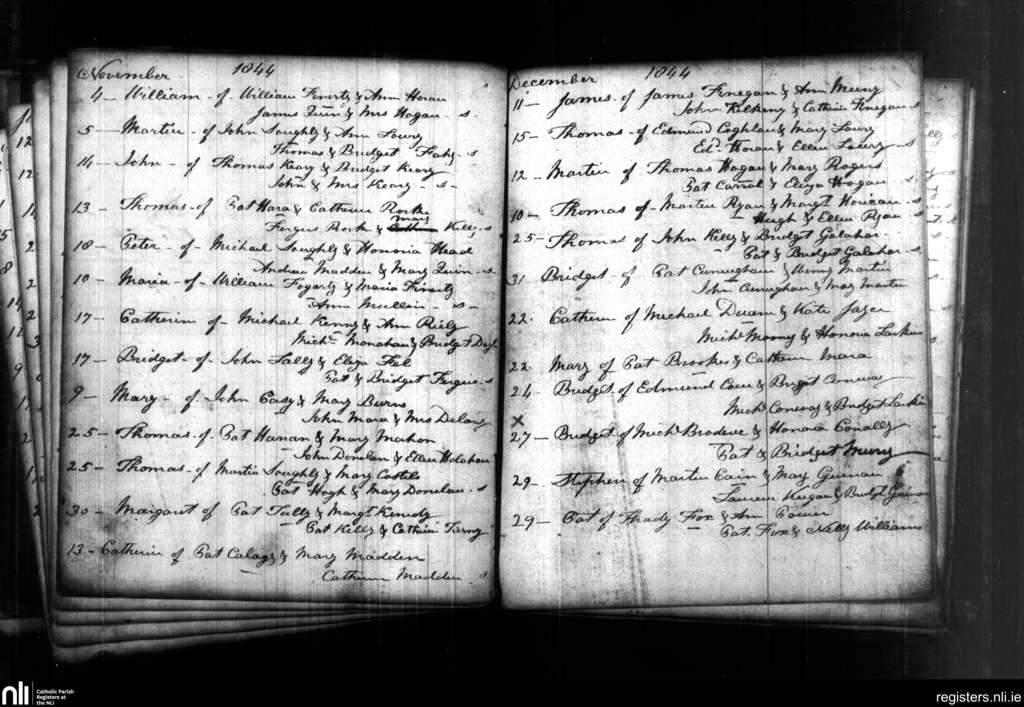 November 1844
4 - William - of - William Finerty & Ann Horan
James Quin & Mrs Hogan - s
5 - Martin - of John Soughly & Ann Lowry
Thomas & Bridget Fahy - s
14 - John - of Thomas Keary & Bridget Keary
John & Mrs Keary - s -
13 - Thomas - of Pat Hara & Catherin Rorke
Fergus Rork & Mary Kelly - s
18 - Peter - of - Michael Soughly & Honoria Head
Andrew Madden & Mary Quin - s
10 - Maria - of - William Fogarty & Maria Finerty
Ann Mullin - s -
17 - Catherin of - Michael Kenny & Ann Riely
Michl Monahan & Bridget
17 - Bridget - of - John Lally & Eliza
Pat & Bridget Fergus - s
9 - Mary - of John Casy & Mary Burns
John Mara & Mrs Delany
25 - Thomas - of - Pat Hanan & Mary Mahon
John Donelan & Ellen Holohan
25 - Thomas - of Martin Soughly & Mary Costelo
Pat Hogh & Mary Donelan - s
30 - Margaret of Pat Tully & Margt Kennedy
Pat Kelly & Cathrin
13 - Catherin of Pat & Mary Madden
Catherin Madden s
December 1844
11 - James - of James Finegan & Ann Murry
John Kilkeny & Cathrin Finegan - s
15 - Thomas - of Edmund Coghlan & Mary Lowry
Ed. Horan & Ellen Lowry - s
12 - Martin of Thomas Hogan & Mary Rogers
Pat Carrol & Eliza Hogan s
10 - Thomas - of - Martin Ryan & Margt Horican - s
Hugh & Ellen Ryan - s
25 - Thomas of John Kelly & Bridget Galahar -
Pat & Bridget Galahar - s
31 Bridget - of Pat Cunugham & Winny Martin
John Cunugham & Mary Martin
22 - Catherin of Michael & Kate
Michl & Honora Larkin
22 - Mary of Pat Brookes & Catherin Mara
24 - Bridget of Edmund & Bridget
Michl Conway & Bridget Larkin
X
27 - Bridget of Michl Broderic & Honora Conally
Pat & Bridget Murry
29 - Stephen of Martin Cain & Mary
& Bridgt
29 - Pat of Thady Fox & Ann Power
Pat. Fox & Nelly Williams
nli Catholic Parish
Registers at
the NLI
registers.nli.ie